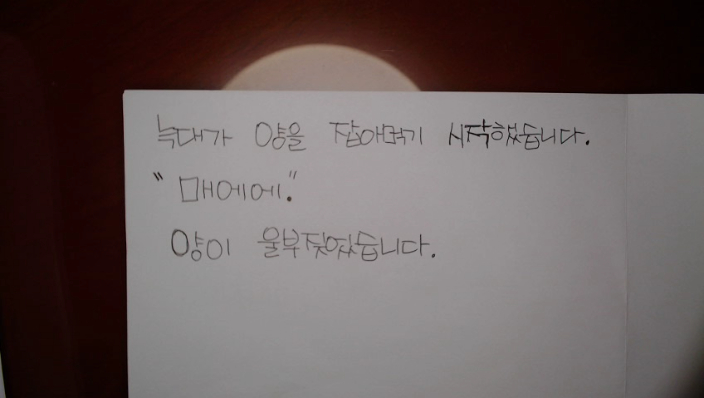 늑대가 양을 잡아먹기 시작했습니다.
"매에에."
양이 울부짖었습니다.